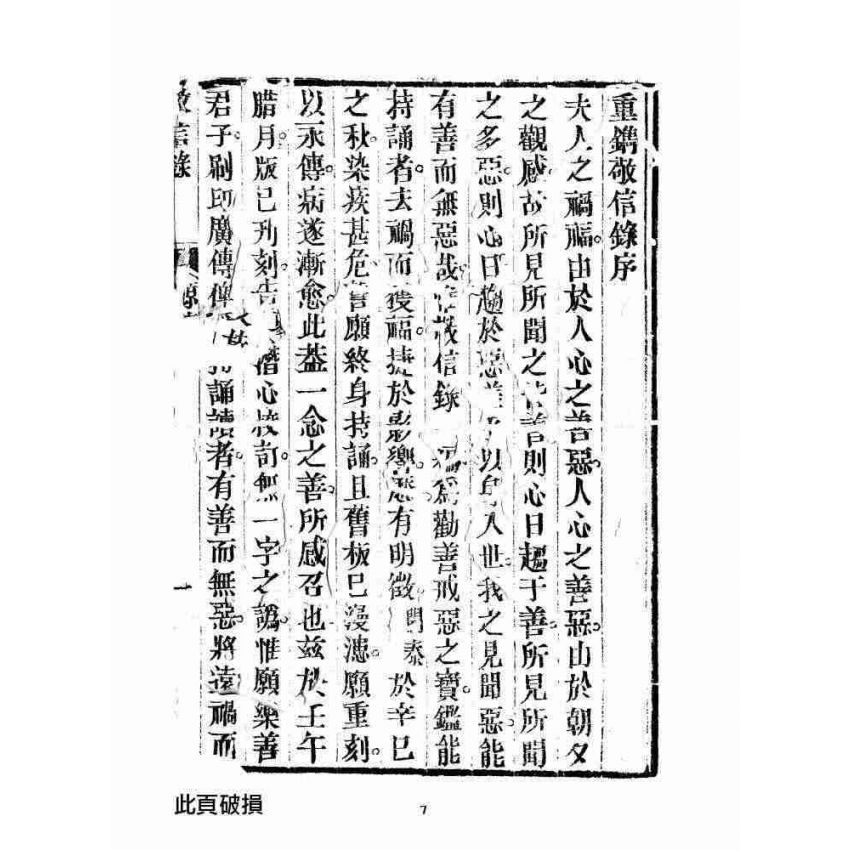 重鐫敬信錄序
夫人之禍福。由於人心之善惡。人心之善惡。由於朝夕
之觀感。故所見所聞之善則心日趨于善。所見所聞
之多惡。則心日趨於惡以入世我之見聞惡。能
有善而無惡哉。敬信錄為勸善戒惡之寶鑑能
持誦者。去禍而獲福。捷於影響。歷有明徵。於辛巳
之秋。染疾甚危。誓願終身持誦。且舊板已漫漶。願重刻。
以永傳。病遂漸愈。此蓋一念之善。所感召也茲於壬午
臘月。版已刋刻告潛心校訂。無一字之譌。惟願樂善
君子。刷印廣傳俾持誦讀者。有善而無惡。將遠禍而
敬信錄
一
此頁破損
7